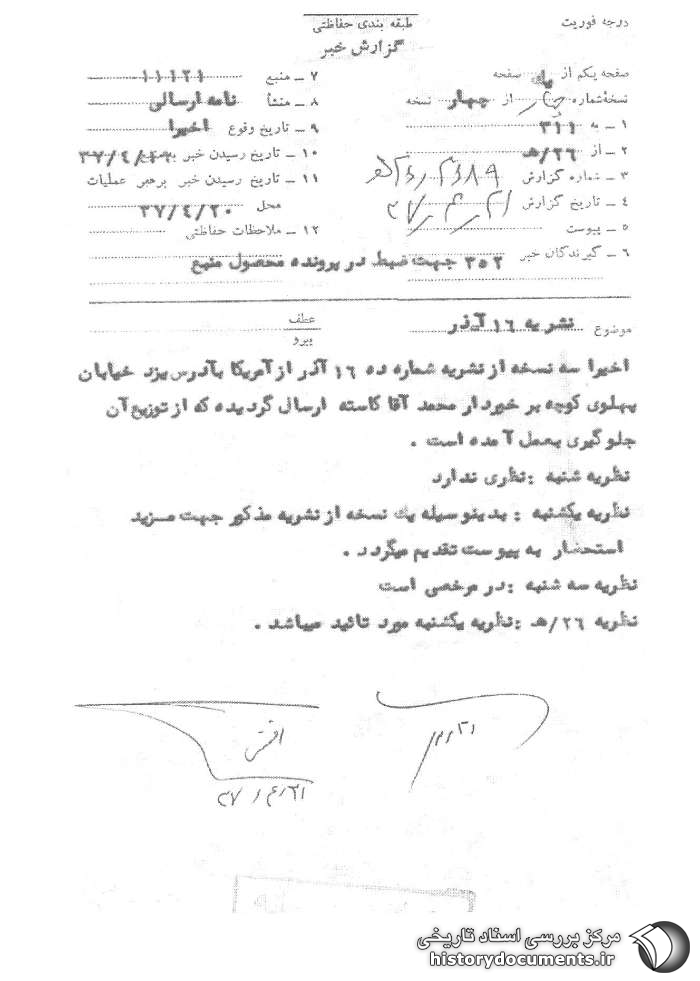 درجه فوریت
طبقه بندی حفاظتی
گزارش خبر
صفحه یکم از یک صفحه
نسخهٔ شماره چهار از چهار نسخه
۱ ـ به ۳۱۱
۲ ـ از ۲۶/هـ
۳ ـ شماره گزارش
۴ ـ تاریخ گزارش ۳۷٫۴٫۲۱
۵ ـ پیوست
۶ ـ گیرندگان خبر ۳۵۲ جهت ضبط در پرونده محصول منبع
۷ ـ منبع ۱۱۱۲۱
۸ ـ منشأ نامه ارسالی
۹ ـ تاریخ وقوع اخیرا
۱۰ ـ تاریخ رسیدن خبر به منبع
۱۱ ـ تاریخ رسیدن خبر برهبر عملیات
محل ۳۷/۴/۲۰
۱۲ ـ ملاحظات حفاظتی
موضوع نشریه ۱۶ آذر
عطف
پیرو
اخیرا سه نسخه از نشریه شماره ده ۱۶ آذر از آمریکا بآدرس یزد خیابان
پهلوی کوچه بر خوردار محمد آقا کاسته ارسال گردیده که از توزیع آن
جلوگیری بعمل آمده است .
نظریه شنبه : نظری ندارد
نظریه یکشنبه : بدینوسیله یک نسخه از نشریه مذکور جهت مزید
استحضار به پیوست تقدیم میگردد .
نظریه سه شنبه : در مرخصی است
نظریه ۲۶/هـ : نظریه یکشنبه مورد تائید میباشد .
افشر
۳۷/۴/۲۱
مرکز بررسی اسناد تاریخی
historydocuments.ir